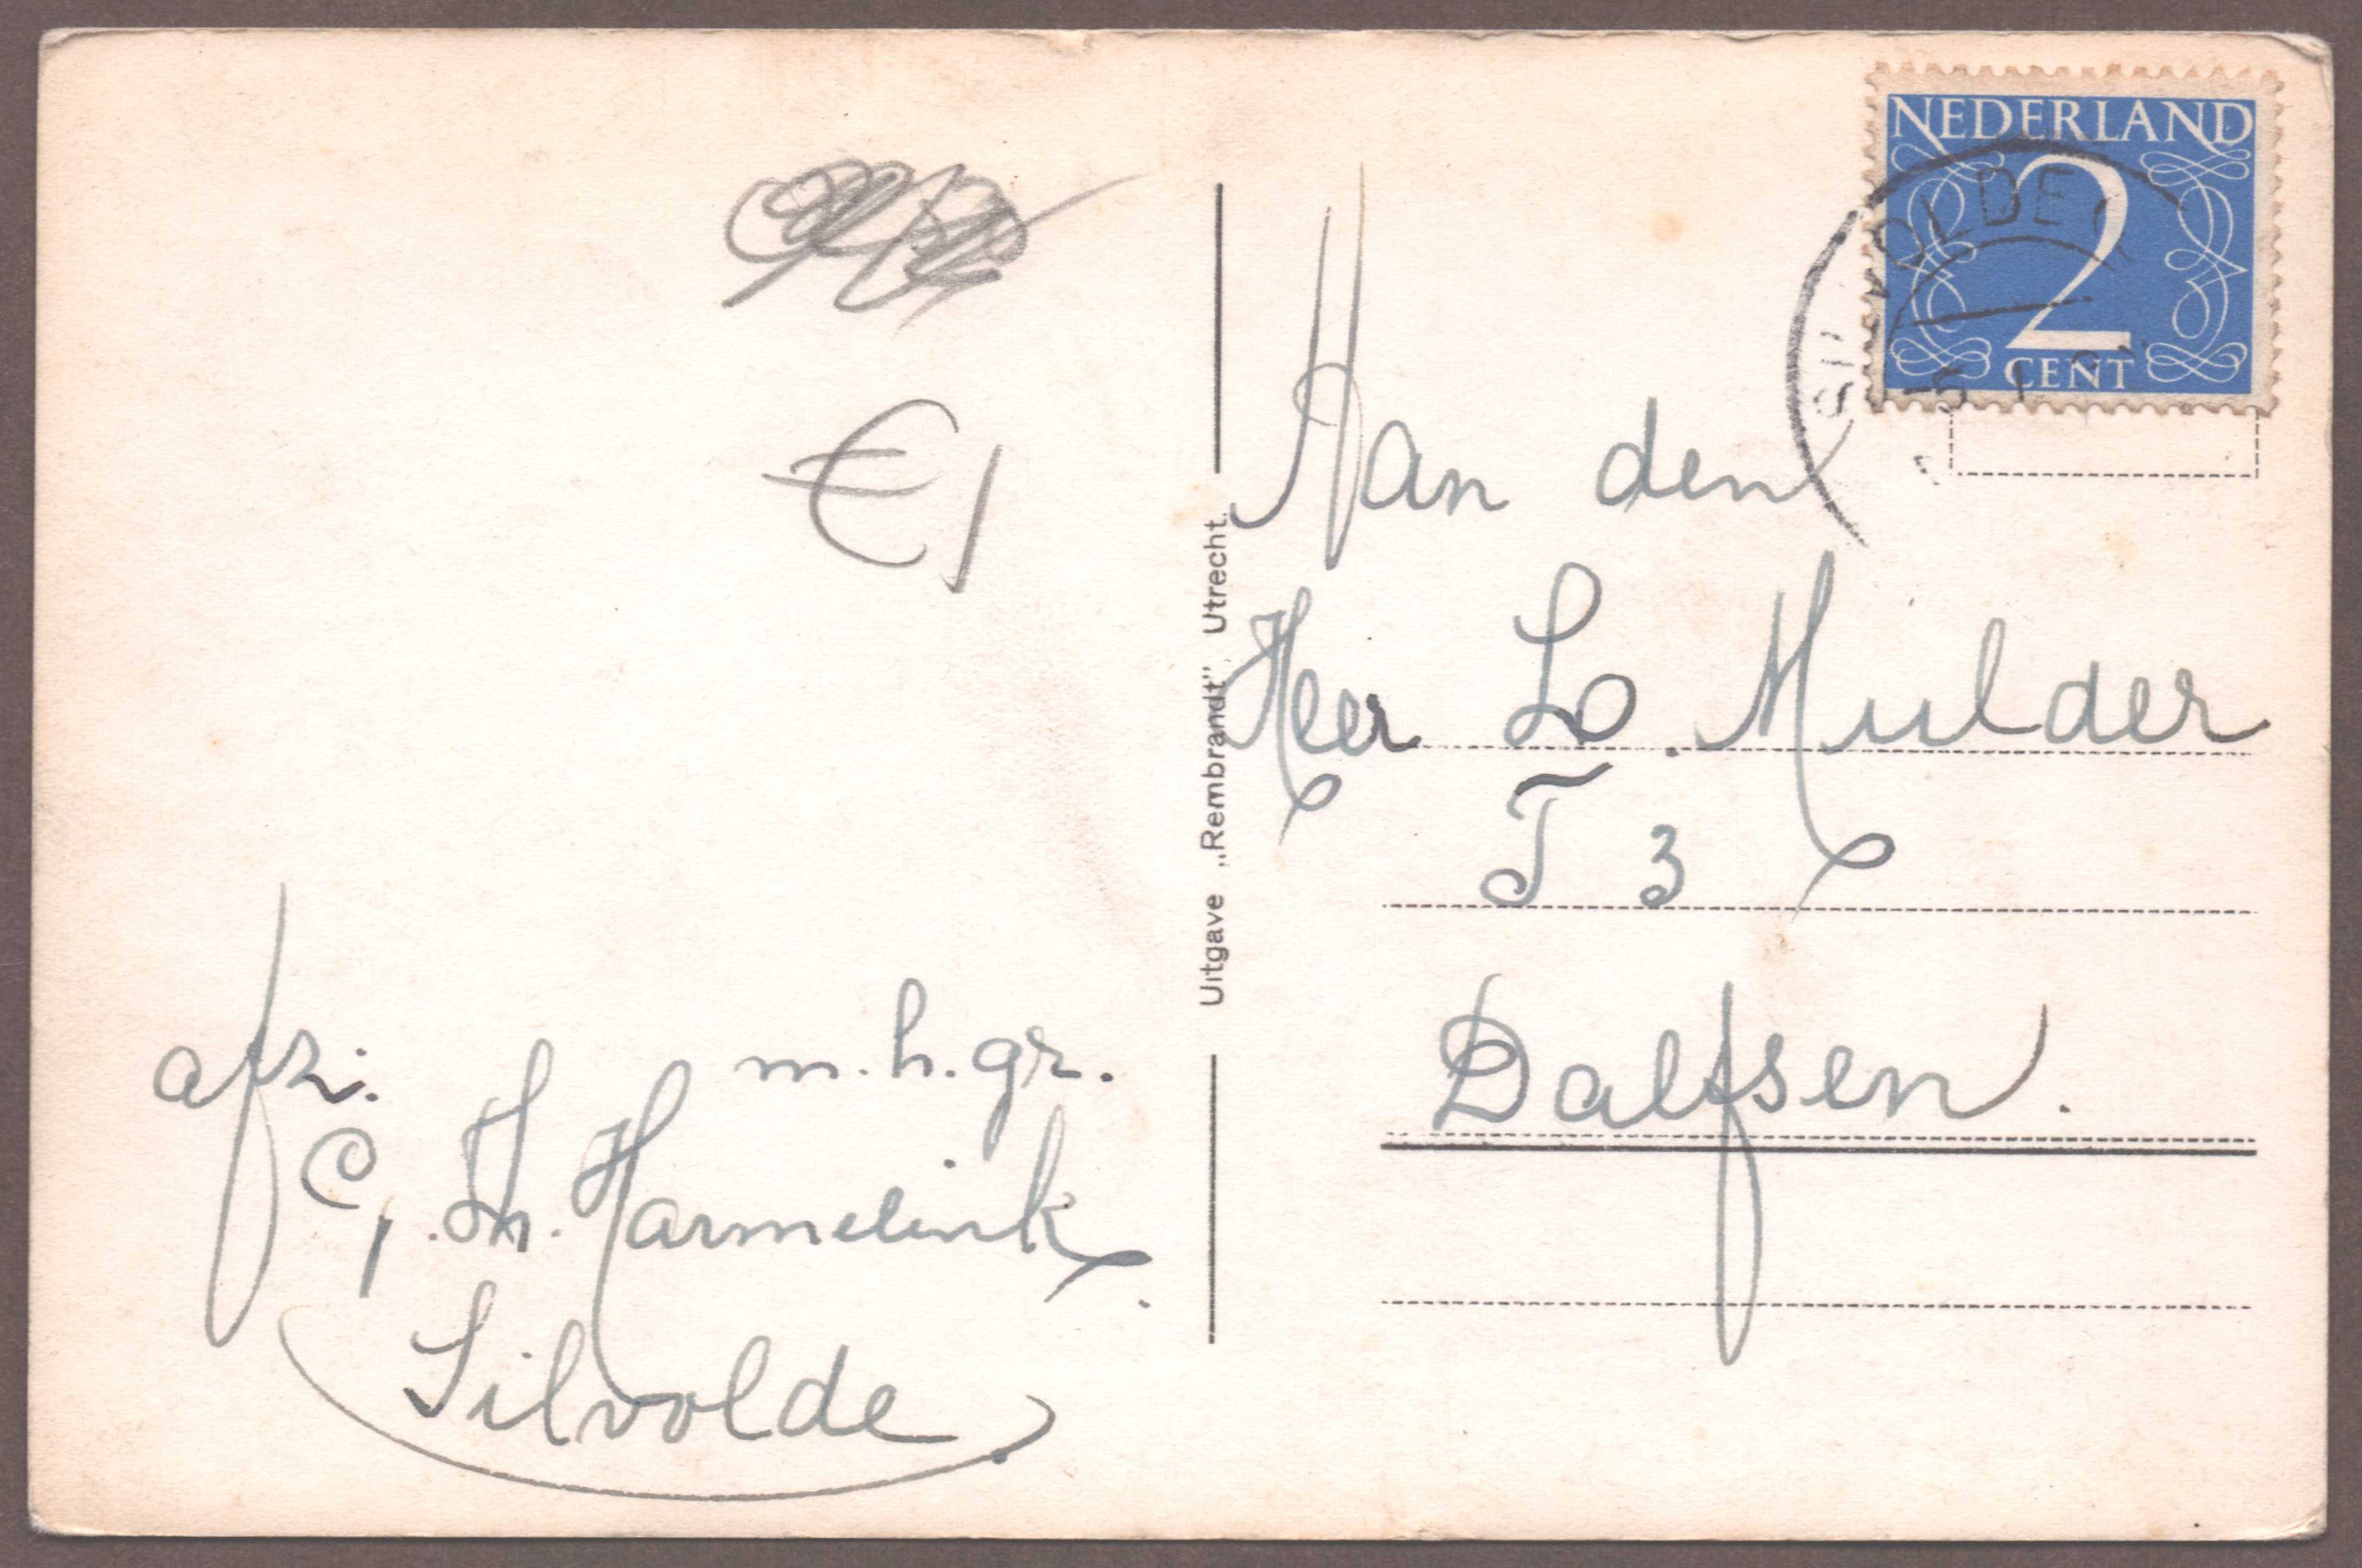 €1
afz.
m.h.gr.
C, Th. Harmelink.
Silvolde.
Uitgave „Rembrandt", Utrecht.
NEDERLAND
2
CENT
SILVOLDE
5 1
Aan den
Heer Lo. Mulder
T 3
Dalfsen.